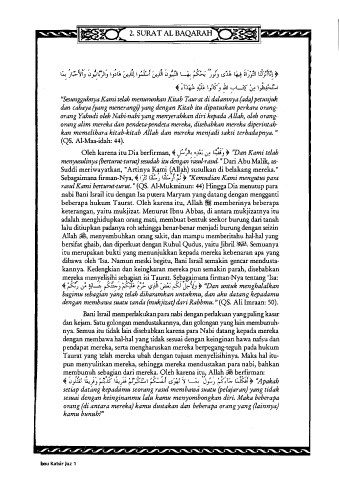 2. SURAT AL BAQARAH
﴿ إِنَّا أَنزَلْنَا التَّوْرَاةَ فِيهَا هُدًى وَنُورٌ يَحْكُمُ بِهَا النَّبِيُّونَ الَّذِينَ أَسْلَمُوا لِلَّذِينَ هَادُوا وَالرَّبَّانِيُّونَ وَالْأَحْبَارُ بِمَا
اسْتُحْفِظُوا مِن كِتَابِ اللَّهِ وَكَانُوا عَلَيْهِ شُهَدَاءَ ﴾
"Sesungguhnya Kami telah menurunkan Kitab Taurat di dalamnya (ada) petunjuk
dan cahaya (yang menerangi) yang dengan Kitab itu diputuskan perkara orang-
orang Yahudi oleh Nabi-nabi yang menyerahkan diri kepada Allah, oleh orang-
orang alim mereka dan pendeta-pendeta mereka, disebabkan mereka diperintah-
kan memelihara kitab-kitab Allah dan mereka menjadi saksi terhadapnya."
(QS. Al-Maa-idah: 44).
Oleh karena itu Dia berfirman, ﴿ وَقَفَّيْنَا مِن بَعْدِهِ بِالرُّسُلِ ﴾ "Dan Kami telah
menyusulinya (berturut-turut) sesudah itu dengan rasul-rasul." Dari Abu Malik, as-
Suddi meriwayatkan, "Artinya Kami (Allah) susulkan di belakang mereka."
Sebagaimana firman-Nya, ﴿ ثُمَّ أَرْسَلْنَا رُسُلَنَا تَتْرَا ﴾ "Kemudian Kami mengutus para
rasul Kami berturut-turut." (QS. Al-Mukminun: 44) Hingga Dia menutup para
nabi Bani Israil itu dengan Isa putera Maryam yang datang dengan mengganti
beberapa hukum Taurat. Oleh karena itu, Allah ﷻ memberinya beberapa
keterangan, yaitu mukjizat. Menurut Ibnu Abbas, di antara mukjizatnya itu
adalah menghidupkan orang mati, membuat bentuk seekor burung dari tanah
lalu ditiupkan padanya roh sehingga benar-benar menjadi burung dengan seizin
Allah ﷻ, menyembuhkan orang sakit, dan mampu memberitahu hal-hal yang
bersifat ghaib, dan diperkuat dengan Ruhul Qudus, yaitu Jibril. Semuanya
itu merupakan bukti yang menunjukkan kepada mereka kebenaran apa yang
dibawa oleh 'Isa. Namun meski begitu, Bani Israil semakin gencar mendusta-
kannya. Kedengkian dan keingkaran mereka pun semakin parah, disebabkan
mereka menyelisihi sebagian isi Taurat. Sebagaimana firman-Nya tentang 'Isa:
﴿ وَلِأُحِلَّ لَكُم بَعْضَ الَّذِي حُرِّمَ عَلَيْكُمْ وَجِئْتُكُم بِآيَةٍ مِّن رَّبِّكُمْ ﴾ "Dan untuk menghalalkan
bagimu sebagian yang telah diharamkan untukmu, dan aku datang kepadamu
dengan membawa suatu tanda (mukjizat) dari Rabbmu." (QS. Ali Imraan: 50).
Bani Israil memperlakukan para nabi dengan perlakuan yang paling kasar
dan kejam. Satu golongan mendustakannya, dan golongan yang lain membunuh-
nya. Semua itu tidak lain disebabkan karena para Nabi datang kepada mereka
dengan membawa hal-hal yang tidak sesuai dengan keinginan hawa nafsu dan
pendapat mereka, serta mengharuskan mereka berpegang-teguh pada hukum
Taurat yang telah mereka ubah dengan tujuan menyelisihinya. Maka hal itu-
pun menyulitkan mereka, sehingga mereka mendustakan para nabi, bahkan
membunuh sebagian dari mereka. Oleh karena itu, Allah ﷻ berfirman:
﴿ أَفَكُلَّمَا جَاءَكُمْ رَسُولٌ بِمَا لَا تَهْوَىٰ أَنفُسُكُمُ اسْتَكْبَرْتُمْ فَفَرِيقًا كَذَّبْتُمْ وَفَرِيقًا تَقْتُلُونَ ﴾ "Apakah
setiap datang kepadamu seorang rasul membawa suatu (pelajaran) yang tidak
sesuai dengan keinginanmu lalu kamu menyombongkan diri. Maka beberapa
orang (di antara mereka) kamu dustakan dan beberapa orang (lainnya)
kamu bunuh?"
Ibnu Katsir Juz 1